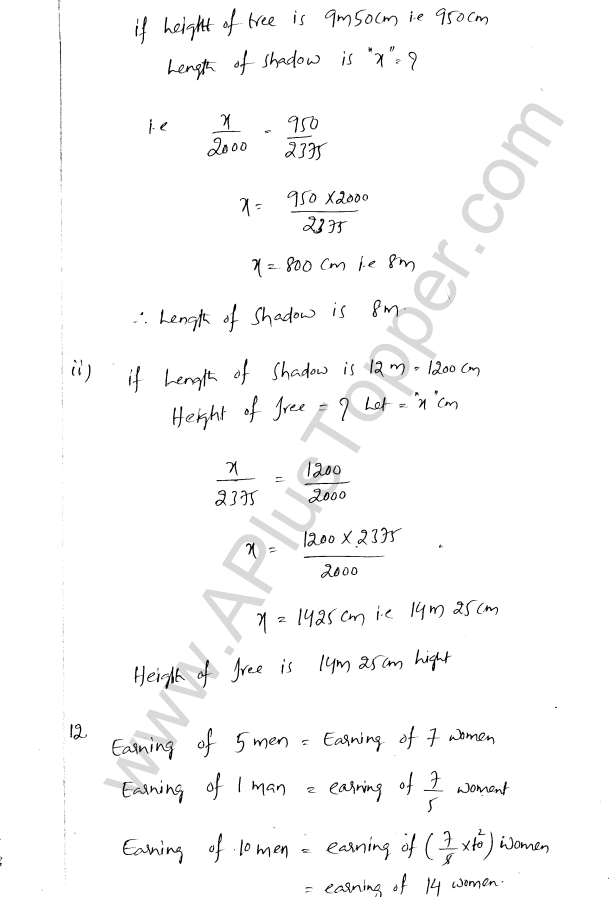 if height of tree is 9m50cm i.e 950cm
Length of shadow is "x" = ?
i.e x/2000 = 950/2375
x = 950 x2000/2375
x = 800 cm i.e 8m
∴ Length of shadow is 8m.
ii) if Length of shadow is 12m = 1200cm
Height of tree = ? Let = "x" cm
x/2375 = 1200/2000
x = 1200 x 2375/2000
x = 1425 cm i.e 14m 25cm
Height of tree is 14m 25cm hight
12 Earning of 5 men = Earning of 7 women
Earning of 1 man = earning of 7/5 woment
Earning of 10 men = earning of (7/5 x10 2) women
= earning of 14 women.
www.APlusTopper.com